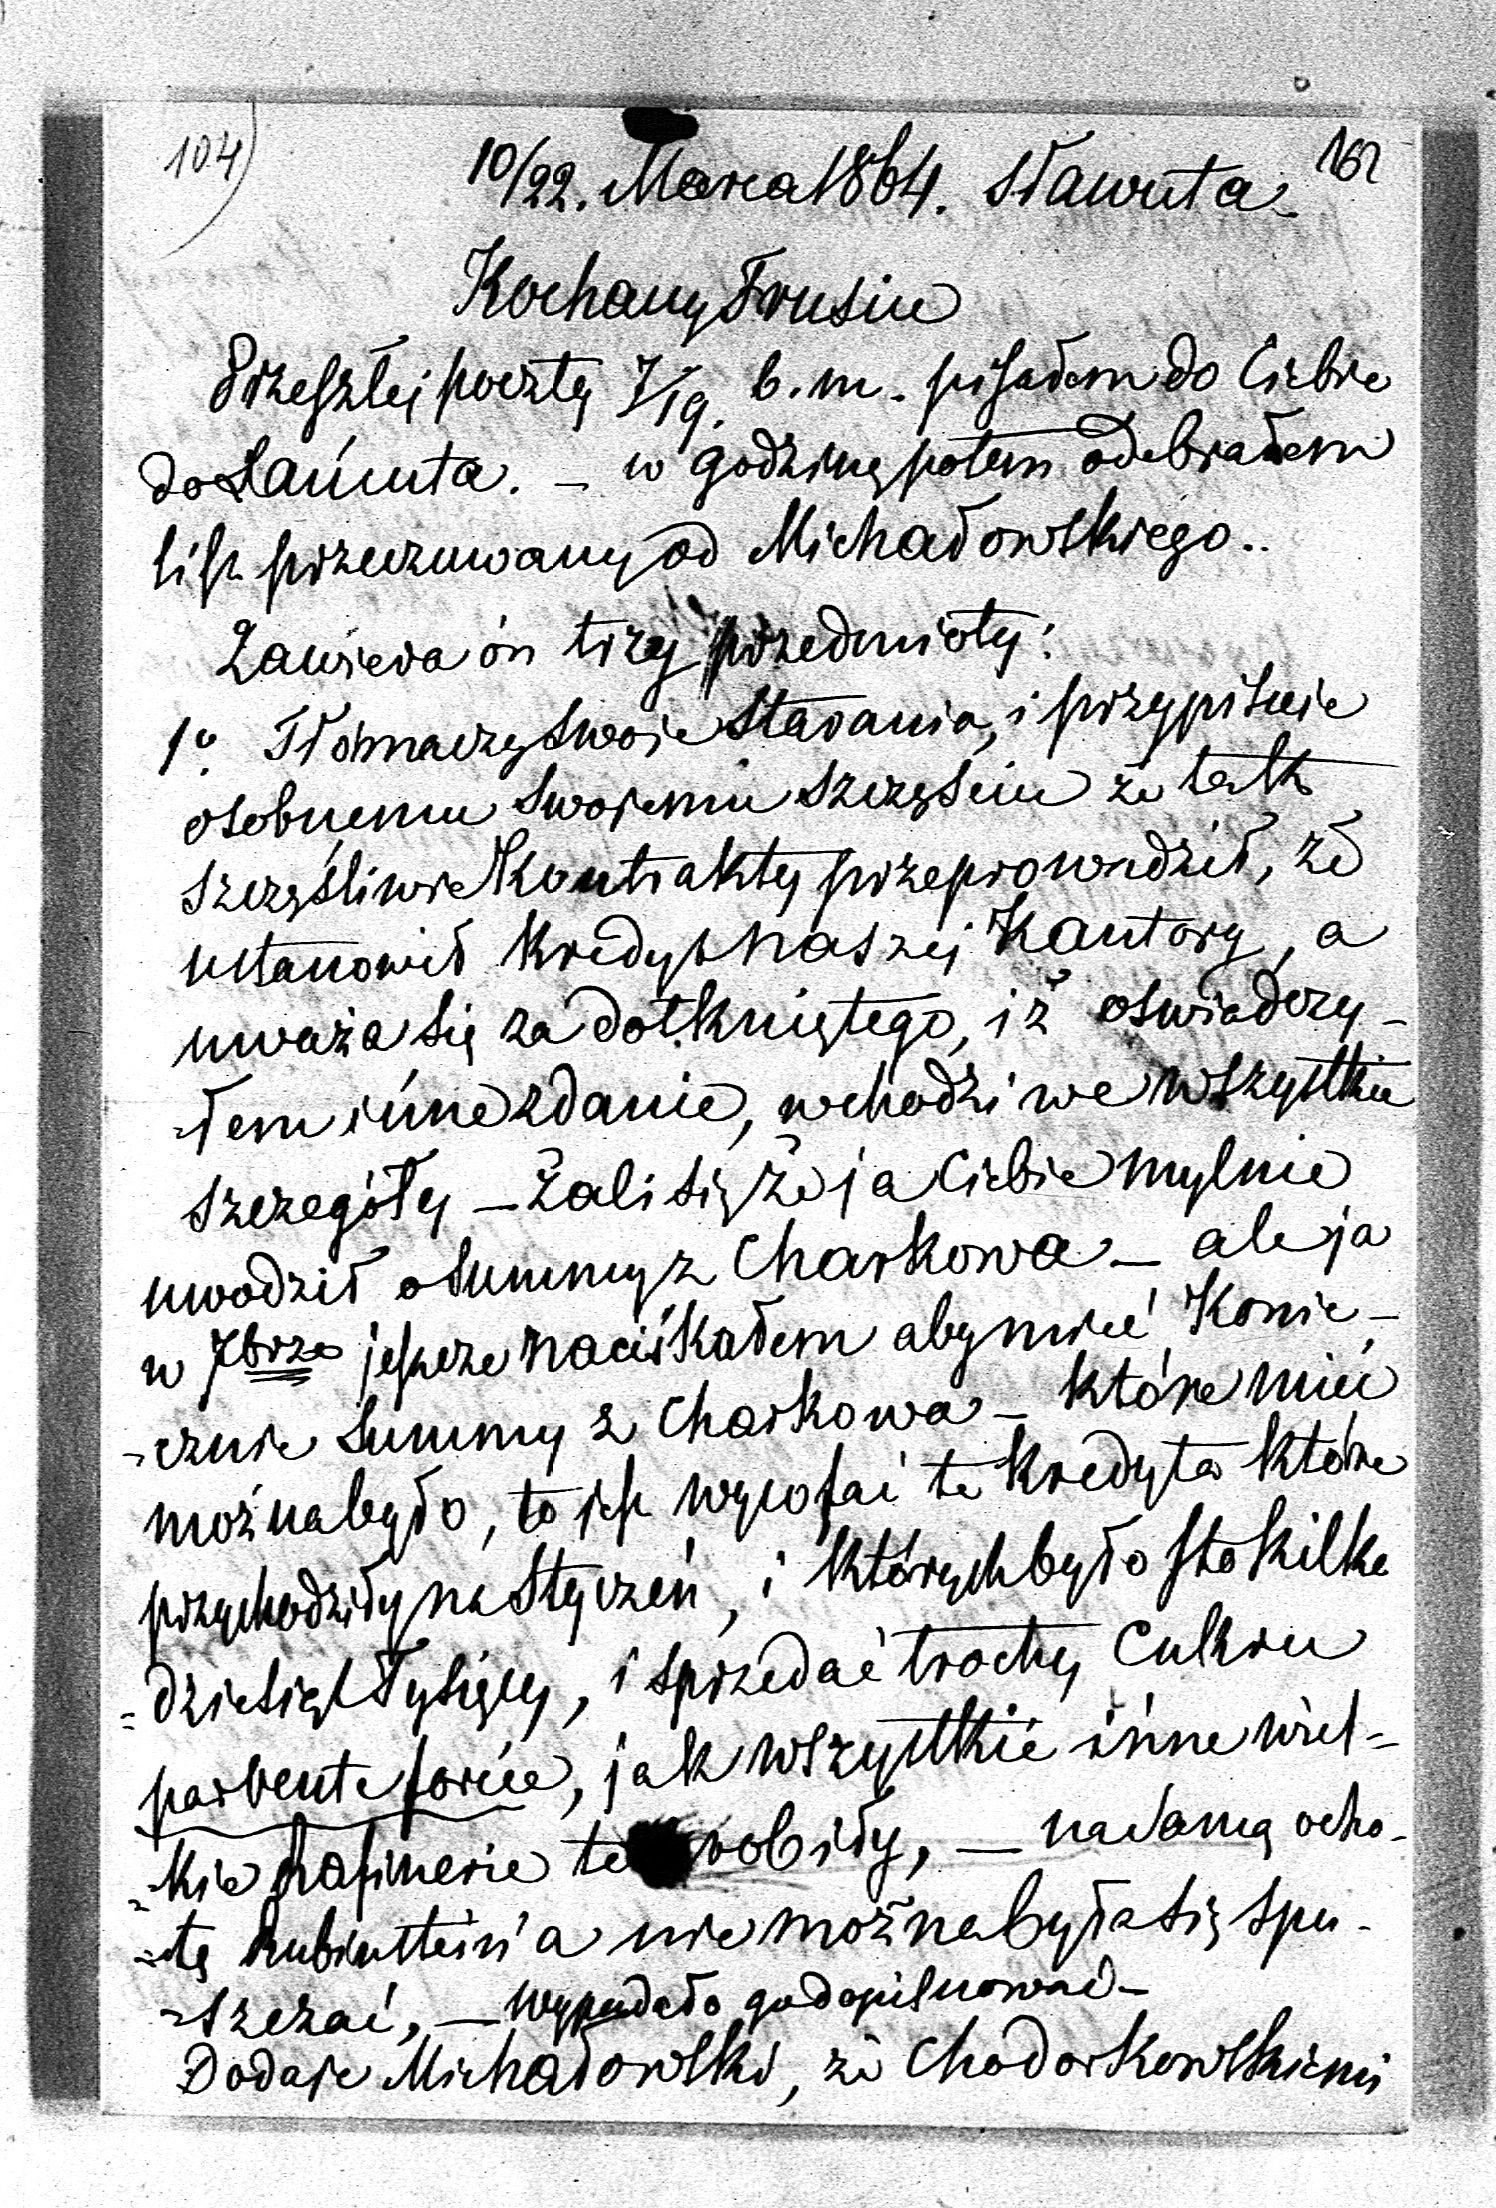 104)
162
10/22. Marca 1864. Sławuta.
Kochany Frusiu
Przeszłej pocztą 7/19. b. m. pisałem do Ciebie
do Łańcuta. – w godzinę potem odebrałem
list przeczuwany od Michałowskiego..
Zawiera ón trzy przedmioty:
1o. Tłómaczy swoje starania, i przypisuie
osobnemu swojemu szczęściu że tak
szczęśliwie Kontrakty przeprowadził, że
ustanowił kredyt naszej Kantory, a
uważa się za dotkniętego, iż oswiadczy-
-łem inne zdanie, wchodzi we wszystkie
szczegóły – Żali się że ja Ciebie mylnie
uwodził o summy z Charkowa – ale ja
w 7brze jeszcze naciskałem aby mieć Konie-
-cznie summy z Charkowa – które mieć
można było, to jest wycofać te kredyta które
przychodziły na Styczeń, i których było sto kilka
-dziesiąt Tysięcy, i sprzedać trochę Cukru
par vente forcée, jak wszystkie inne wiel-
-kie Rafinerie te robiły, – na samą ocho-
-tę Rubinstein'a nie można była się spu-
-szczać, – wypadało go dopilnować –
Dodaje Michałowski, że Chodorkowskiemi